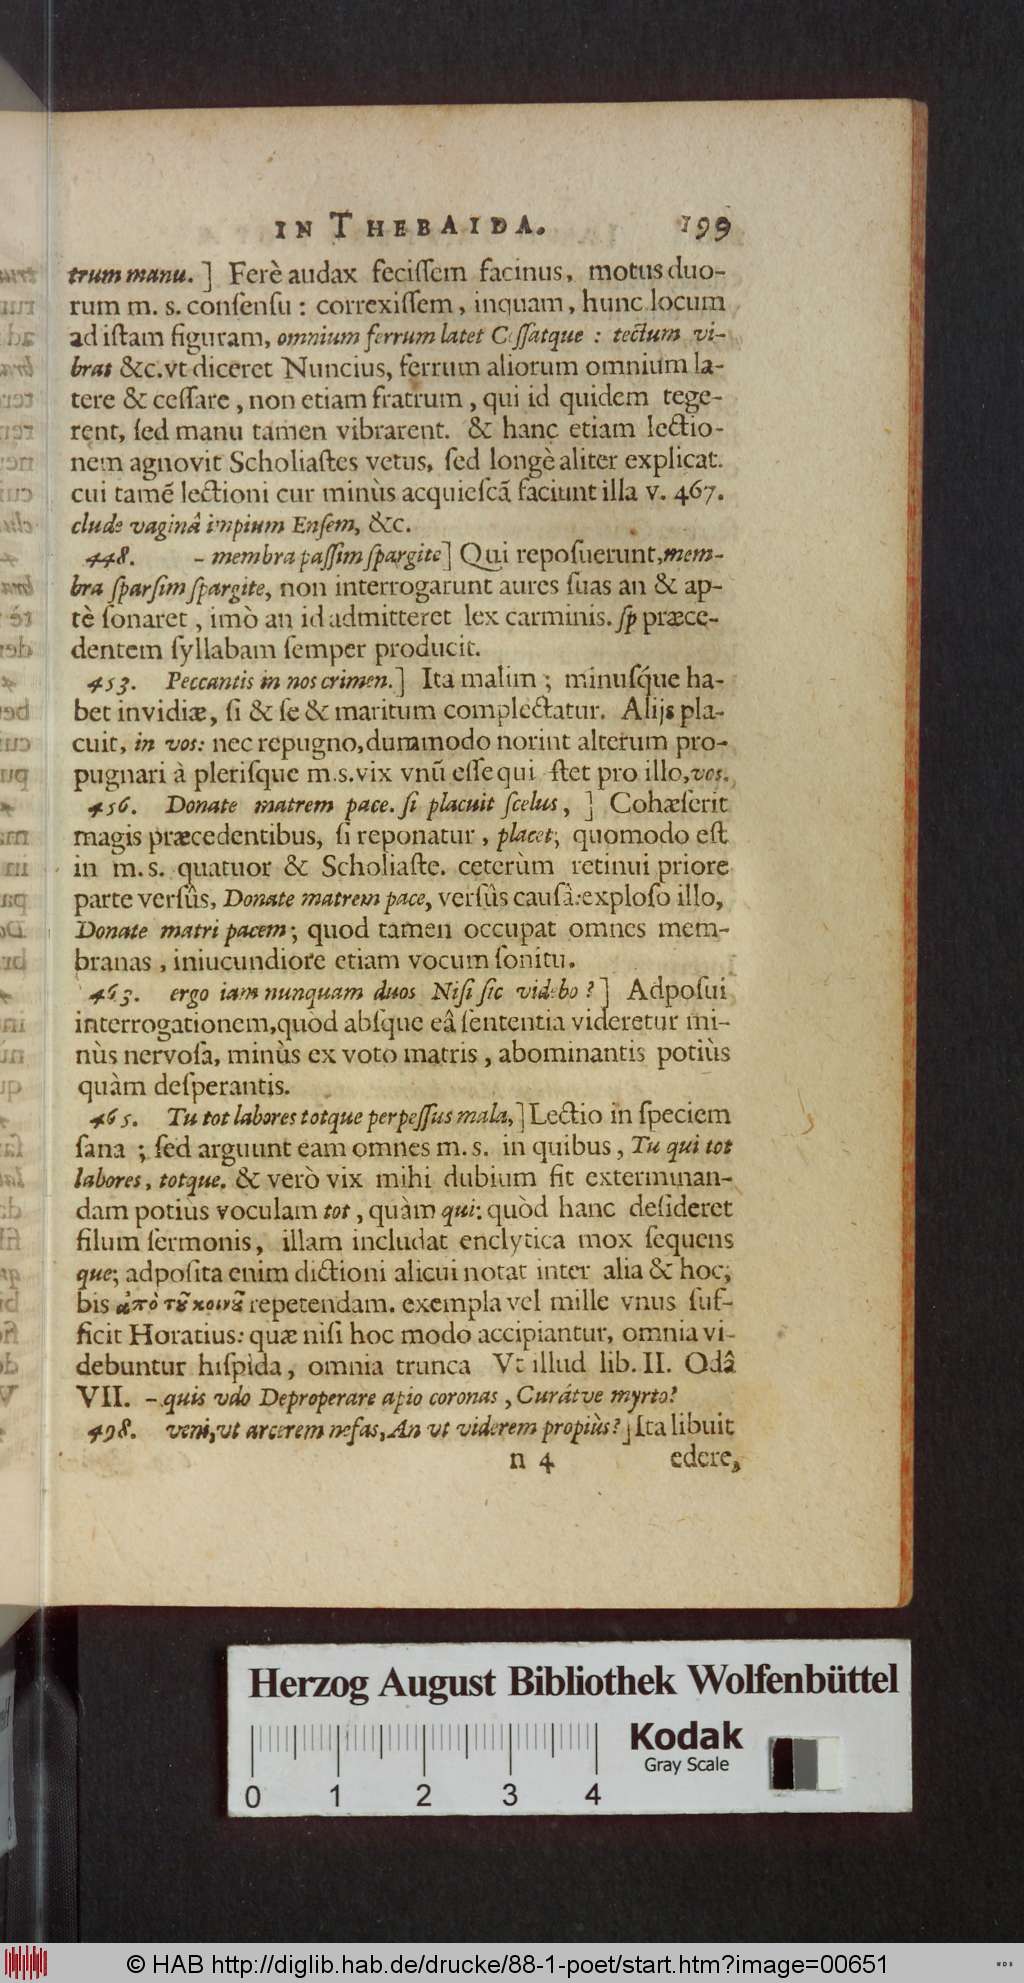 IN THEBAIDA. 199
trum manu.] Ferè audax feciſſem facinus, motus duo-
rum m. s. conſenſu : correxiſſem, inquam, hunc locum
ad iſtam figuram, omnium ferrum latet Ceſſatque : tectum vi-
brat &c. vt diceret Nuncius, ferrum aliorum omnium la-
tere & ceſſare, non etiam fratrum, qui id quidem tege-
rent, ſed manu tamen vibrarent. & hanc etiam lectio-
nem agnovit Scholiaſtes vetus, ſed longè aliter explicat.
cui tamē lectioni cur minùs acquieſcā faciunt illa v. 467.
clude vaginâ impium Enſem, &c.
448. - membra paſſim ſpargite] Qui repoſuerunt, mem-
bra ſparſim ſpargite, non interrogarunt aures ſuas an & ap-
tè ſonaret, imò an id admitteret lex carminis. ſp præce-
dentem ſyllabam ſemper producit.
453. Peccantis in nos crimen.] Ita malim ; minuſq́ue ha-
bet invidiæ, ſi & ſe & maritum complectatur. Alijs pla-
cuit, in vos: nec repugno, dummodo norint alterum pro-
pugnari à pleriſque m.s. vix vnū eſſe qui ſtet pro illo, vos.
456. Donate matrem pace. ſi placuit ſcelus, ] Cohæſerit
magis præcedentibus, ſi reponatur, placet; quomodo eſt
in m. s. quatuor & Scholiaſte. ceterùm retinui priore
parte verſûs, Donate matrem pace, verſûs cauſâ: exploſo illo,
Donate matri pacem; quod tamen occupat omnes mem-
branas, iniucundiore etiam vocum ſonitu.
463. ergo iam nunquam duos Niſi ſic videbo ?] Adpoſui
interrogationem, quòd abſque eâ ſententia videretur mi-
nùs nervoſa, minùs ex voto matris, abominantis potiùs
quàm deſperantis.
465. Tu tot labores totque perpeſſus mala,] Lectio in ſpeciem
ſana ; ſed arguunt eam omnes m. s. in quibus, Tu qui tot
labores, totque. & verò vix mihi dubium fit exterminan-
dam potiùs voculam tot, quàm qui: quòd hanc deſideret
filum ſermonis, illam includat enclytica mox ſequens
que; adpoſita enim dictioni alicui notat inter alia & hoc;
bis ἀπὸ τȣ͂ κοινȣ͂ repetendam. exempla vel mille vnus ſuf-
ficit Horatius: quæ niſi hoc modo accipiantur, omnia vi-
debuntur hiſpida, omnia trunca Vt illud lib. II. Odâ
VII. - quis vdo Deproperare apio coronas, Curátve myrto?
498. veni, vt arcerem nefas, An vt viderem propiùs?] Ita libuit
n 4 edere,
Herzog August Bibliothek Wolfenbüttel
Kodak
Gray Scale
0 1 2 3 4
© HAB http://diglib.hab.de/drucke/88-1-poet/start.htm?image=00651